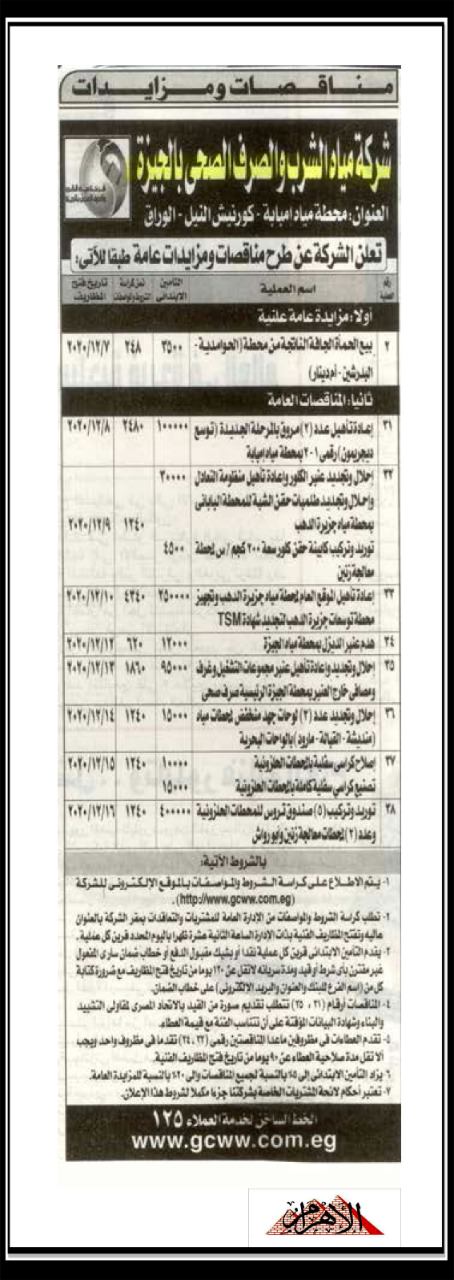 مناقصات ومزايدات
شركة مياه الشرب والصرف الصحى بالجيزة
العنوان: محطة مياه امبابة - كورنيش النيل - الوراق
تعلن الشركة عن طرح مناقصات ومزايدات عامة طبقا للآتى:
رقم العملية اسم العملية التأمين الابتدائى ثمن كراسة الشروط والمواصفات تاريخ فتح المظاريف
أولا: مزايدة عامة علنية
٢ بيع الحمأة الجافة الناتجة من محطة (الحوامدية - ٣٥٠٠ ٢٤٨ ٢٠٢٠/١٢/٧
البدرشين - أم دينار)
ثانيا: المناقصات العامة
٣١ إعادة تأهيل عدد (٢) مروق بالمرحلة الجديدة (توسع ١٠٠٠٠٠ ٢٤٨٠ ٢٠٢٠/١٢/٨
ديجريمون) رقمى ١-٢ بمحطة مياه امبابة
٣٢ إحلال وتجديد عنبر الكلور وإعادة تأهيل منظومة التعادل ٣٠٠٠٠
وإحلال وتجديد طلمبات حقن الشبة للمحطة اليابانى
بمحطة مياه جزيرة الدهب ١٢٤٠ ٢٠٢٠/١٢/٩
توريد وتركيب كابينة حقن كلور سعة ٢٠٠ كجم/س لمحطة ٤٥٠٠
معالجة زنين
٣٣ إعادة تأهيل الموقع العام لمحطة مياه جزيرة الدهب وتجهيز ٢٥٠٠٠٠ ٤٣٤٠ ٢٠٢٠/١٢/١٠
محطة توسعات جزيرة الدهب لتجديد شهادة TSM
٣٤ هدم عنبر الديزل بمحطة مياه الجيزة ١٢٠٠٠ ٦٢٠ ٢٠٢٠/١٢/١٢
٣٥ إحلال وتجديد وإعادة تأهيل عنبر مجموعات التشغيل وغرف ٩٥٠٠٠ ١٨٦٠ ٢٠٢٠/١٢/١٣
ومصافى خارج العنبر بمحطة الجيزة الرئيسية صرف صحى
٣٦ إحلال وتجديد عدد (٣) لوحات جهد منخفض لمحطات مياه ١٥٠٠٠ ١٢٤٠ ٢٠٢٠/١٢/١٤
(منديشة - القبالة - مارود) بالواحات البحرية
٣٧ إصلاح كراسى سفلية بالمحطات الحلزونية ١٠٠٠٠ ١٢٤٠ ٢٠٢٠/١٢/١٥
تصنيع كراسى سفلية كاملة بالمحطات الحلزونية ١٥٠٠٠
٣٨ توريد وتركيب (٥) صندوق تروس للمحطات الحلزونية ٤٠٠٠٠٠ ١٢٤٠ ٢٠٢٠/١٢/١٦
وعدد (٢) لمحطات معالجة زنين وأبو رواش
بالشروط الآتية:
١- يتم الاطلاع على كراسة الشروط والمواصفات بالموقع الإلكترونى للشركة
(http://www.gcww.com.eg).
٢- تطلب كراسة الشروط والمواصفات من الإدارة العامة للمشتريات والتعاقدات بمقر الشركة بالعنوان
عاليه وتفتح المظاريف الفنية بذات الإدارة الساعة الثانية عشرة ظهرا باليوم المحدد قرين كل عملية.
٣- يقدم التأمين الابتدائى قرين كل عملية نقدا أو بشيك مقبول الدفع أو خطاب ضمان سارى المفعول
غير مقترن بأى شرط أو قيد ومدة سريانه لا تقل عن ١٢٠ يوما من تاريخ فتح المظاريف مع ضرورة كتابة
كل من (اسم الفرع للبنك والعنوان والبريد الالكترونى) على خطاب الضمان.
٤- المناقصات أرقام (٣١، ٣٥) تتطلب تقديم صورة من القيد بالاتحاد المصرى لمقاولى التشييد
والبناء وشهادة البيانات المؤقتة على أن تتناسب الفئة مع قيمة العطاء.
٥- تقدم العطاءات فى مظروفين ماعدا المناقصتين رقمى (٣٣، ٣٤) تقدما فى مظروف واحد ويجب
ألا تقل مدة صلاحية العطاء عن ٩٠ يوما من تاريخ فتح المظاريف الفنية.
٦- يزاد التأمين الابتدائى إلى ٥٪ بالنسبة لجميع المناقصات وإلى ٣٠٪ بالنسبة للمزايدة العامة.
٧- تعتبر أحكام لائحة المشتريات الخاصة بشركتنا جزءا مكملا لشروط هذا الإعلان.
الخط الساخن لخدمة العملاء ١٢٥
www.gcww.com.eg
الأهرام